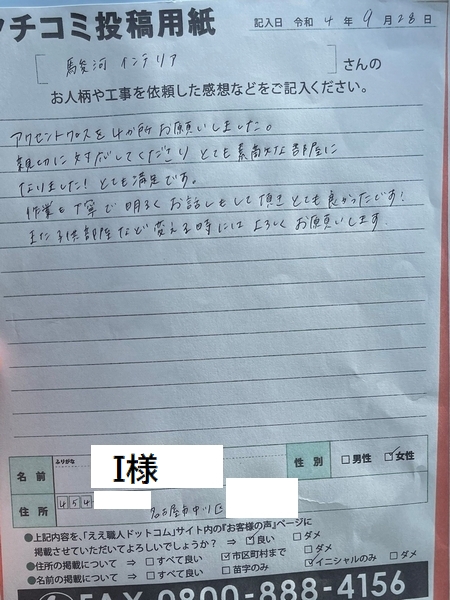 クチコミ投稿用紙
記入日 令和 4 年 9 月 28 日
[ 駿河 インテリア ] さんの
お人柄や工事を依頼した感想などをご記入ください。
アクセントクロスを4か所お願いしました。
親切に対応してくださり とても素敵なお部屋に
なりました! とても満足です。
作業も丁寧で明るくお話しもして頂きとても良かったです!
また子供部屋など変える時にはよろしくお願いします
ふりがな
名前 I様
性別 □男性 ☑女性
住所 454
名古屋市中川区
●上記内容を、「ええ職人ドットコム」サイト内の「お客様の声」ページに
掲載させていただいてよろしいでしょうか? ⇒ ☑良い □ダメ
●住所の掲載について ⇒ □すべて良い ☑市区町村まで □ダメ
●名前の掲載について ⇒ □すべて良い □苗字のみ ☑イニシャルのみ □ダメ
FAX 0800-888-4156